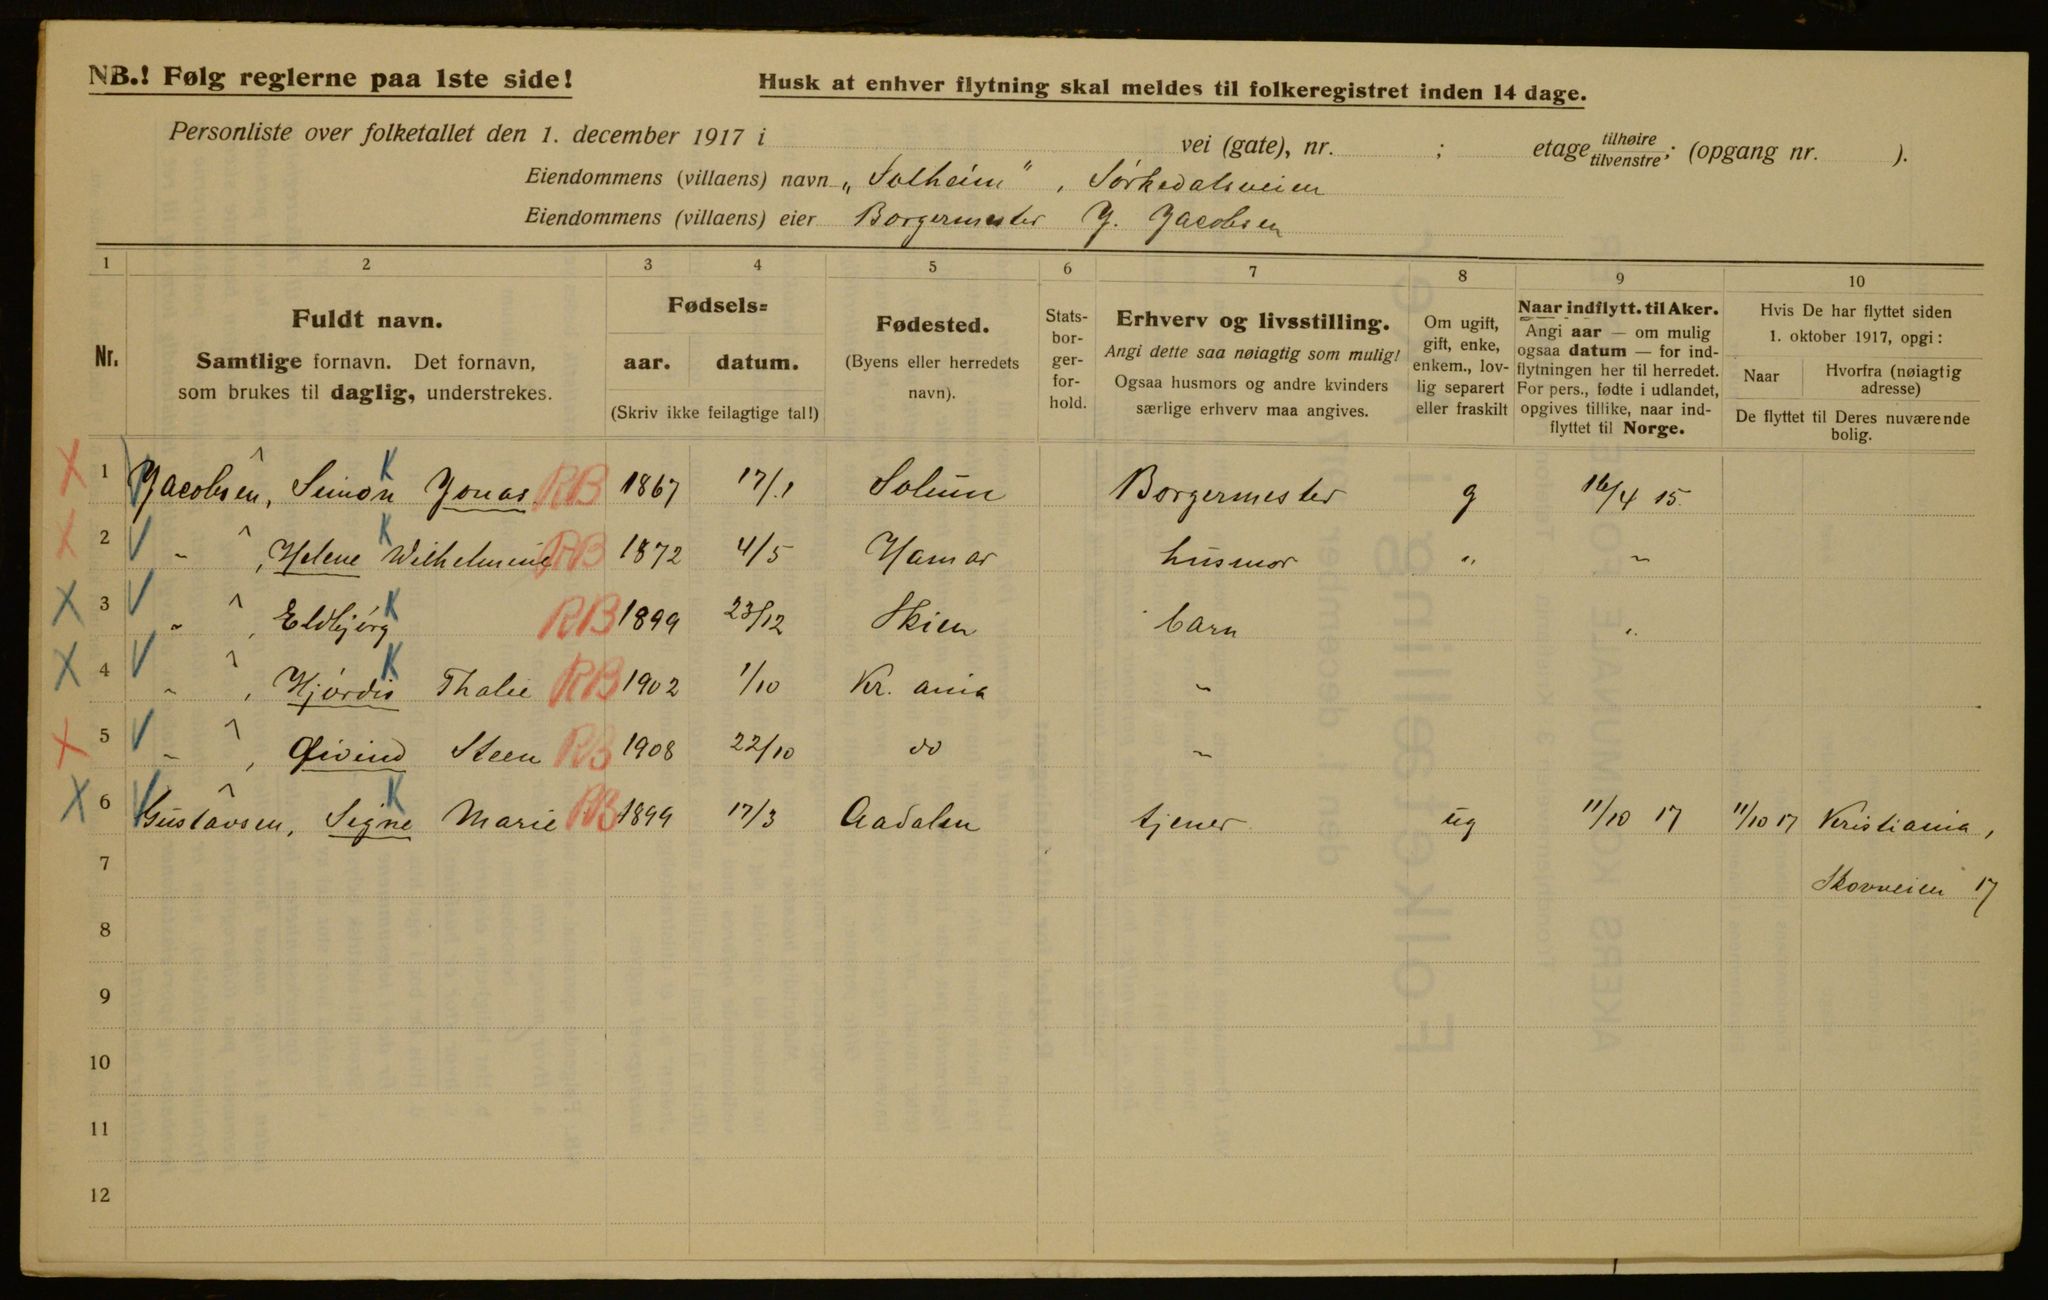 NB.! Følg reglerne paa 1ste side!
Husk at enhver flytning skal meldes til folkeregistret inden 14 dage.
Personliste over folketallet den 1. december 1917 i vei (gate), nr. ; etage tilhøire tilvenstre; (opgang nr. ).
Eiendommens (villaens) navn „Solheim", Sörkedalsveien
Eiendommens (villaens) eier Borgermester J. Jacobsen
1 2 3 4 5 6 7 8 9 10
Nr.
Fuldt navn.
Samtlige fornavn. Det fornavn,
som brukes til daglig, understrekes.
Fødsels=
aar. datum.
(Skriv ikke feilagtige tal!)
Fødested.
(Byens eller herredets
navn).
Stats-
bor-
ger-
for-
hold.
Erhverv og livsstilling.
Angi dette saa nøiagtig som mulig!
Ogsaa husmors og andre kvinders
særlige erhverv maa angives.
Om ugift,
gift, enke,
enkem., lov-
lig separert
eller fraskilt
Naar indflytt. til Aker.
Angi aar — om mulig
ogsaa datum — for ind-
flytningen her til herredet.
For pers., fødte i udlandet,
opgives tillike, naar ind-
flyttet til Norge.
Hvis De har flyttet siden
1. oktober 1917, opgi:
Naar
Hvorfra (nøiagtig
adresse)
De flyttet til Deres nuværende
bolig.
X 1 Jacobsen, Simon Jonas K RB 1867 17/1 Solum Borgermester g 16/4 15.
X 2 " , Helene Wilhelmine K RB 1872 4/5 Hamar husmor " "
X 3 " , Eldbjörg K RB 1899 23/12 Skien barn "
X 4 " , Hjördis Thalie K RB 1902 1/10 Kr.ania "
X 5 " , Øivind Steen RB 1908 22/10 do "
X 6 Gustavsen, Signe Marie K RB 1899 17/3 Aadalen tjener ug 11/10 17 11/10 17 Kristiania,
7 Skovveien 17
8
9
10
11
12